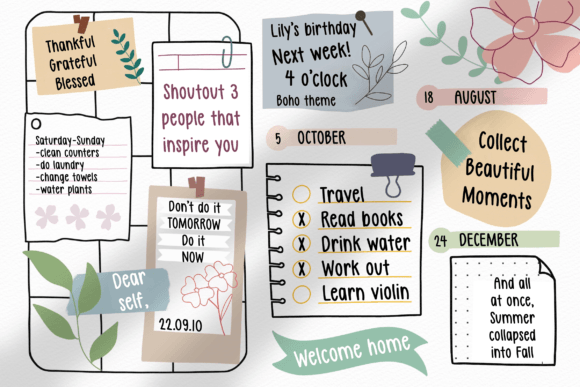 Thankful
Grateful
Blessed
Shoutout 3
people that
inspire you
Saturday-Sunday
-clean counters
-do laundry
-change towels
-water plants
Don't do it
TOMORROW
Do it
NOW
22.09.10
Dear
self,
Lily's birthday
Next week!
4 o'clock
Boho theme
5 OCTOBER
Travel
X Read books
X Drink water
X Work out
Learn violin
Welcome home
18 AUGUST
Collect
Beautiful
Moments
24 DECEMBER
And all
at once,
Summer
collapsed
into Fall